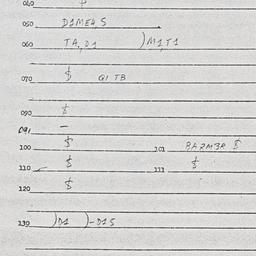 040 $
050 D1ME4S
060 TA,D1 )M1,T1
070 $ Q1 TB
090 $
091 —
100 $ 101 BA2M3R $
110 $ 111 $
120 $
130 )D1 )-D1S